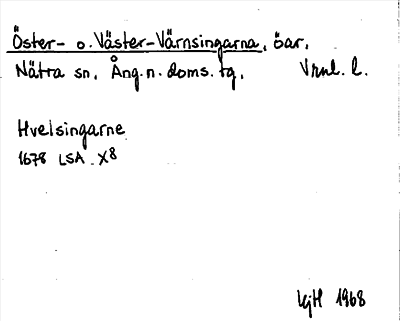 Öster- o. Väster-Värnsingarna, öar.
Nätra sn. Ång. n. doms. tg. Vrnl. l.
Hvelsingarne
1678 LSA. X8
KjH 1968